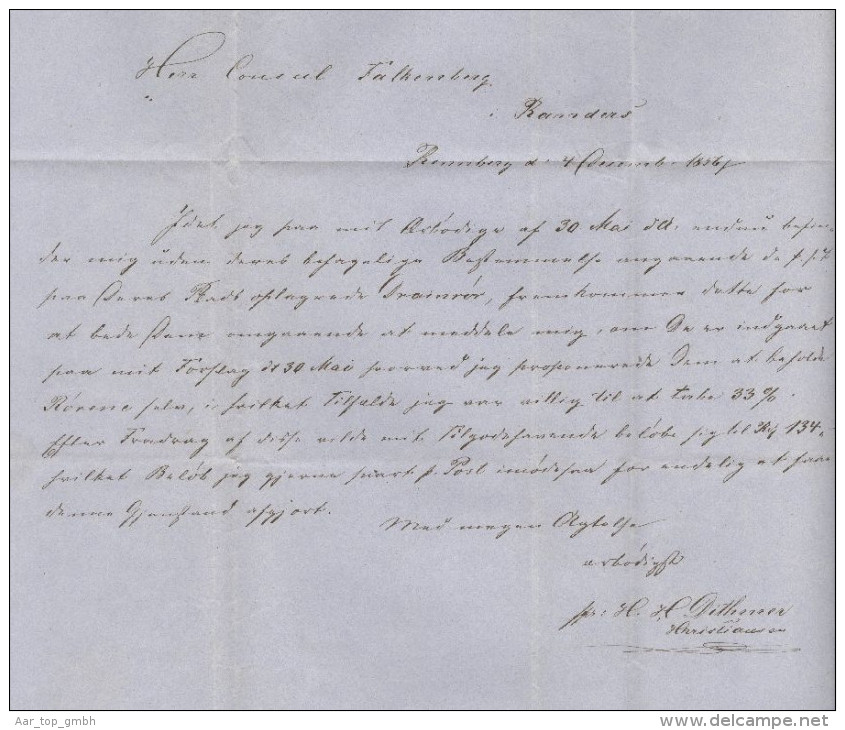 Herr Consul Falkenberg
i Randers
Rennberg d. 4 Decemb. 1856
Idet jeg paa mit Ærbödige af 30 Mai d.A. endnu befin-
der mig uden deres behagelige Bestemmelse angaaende de
paa Deres Plads oplagrede Drainrör, fremkommer dette for
at bede Dem omgaaende at meddele mig, om De er indgaaet
paa mit Forslag dt 30 Mai hvorved jeg proponerede Dem at beholde
Rörene selv, i hvilket Tilfælde jeg var villig til at tabe 33 %.
Efter Fradrag af disse vilde mit Tilgodehavende belöbe sig til 134,
hvilket Belöb jeg gjerne snart p. Post imödesaa for endelig at faae
denne Gjenstand afgjort.
Med megen Agtelse
ærbödigst
pr: H. H. Dithmer
Christiansen
Aar_top_gmbh
www.delcampe.net